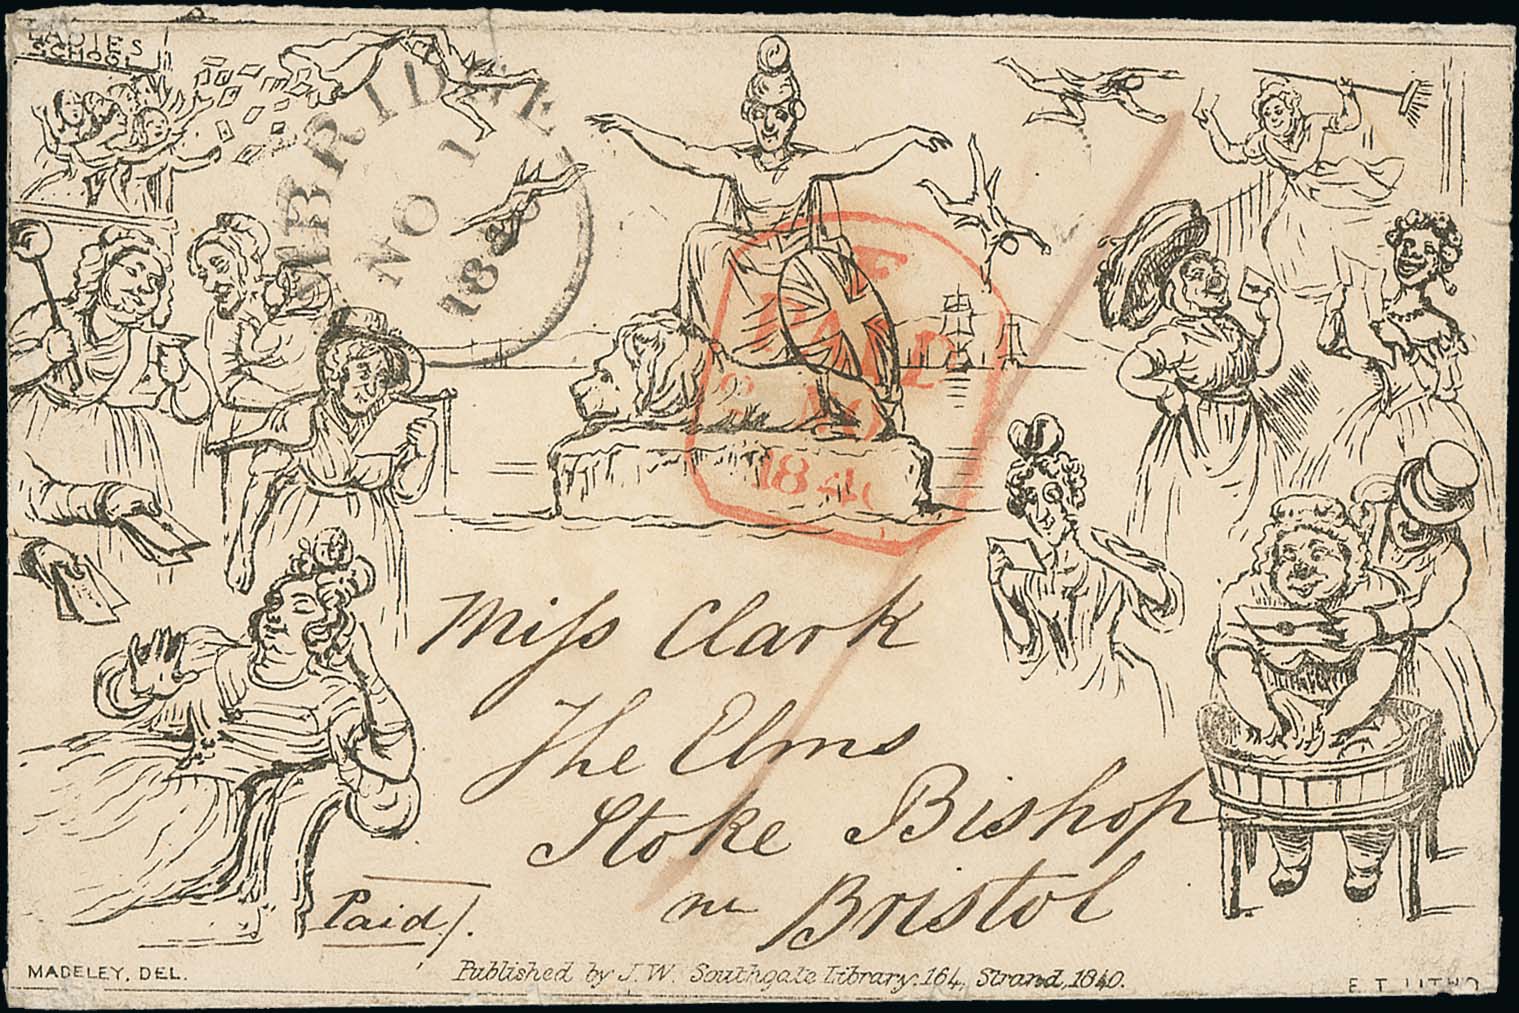 LADIES
SCHOOL
BRIDGE
NO 1
18
PAID
2 NO
1840
Miſs Clark
The Elms
Stoke Bishop
nr Bristol
Paid/.
MADELEY, DEL.
Published by J. W. Southgate Library, 164, Strand, 1840.
E. T. LITHO